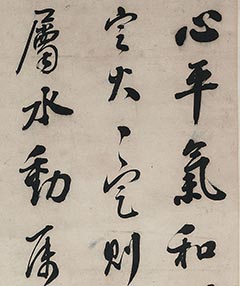 心平氣和
定火〻定則
屬水動属